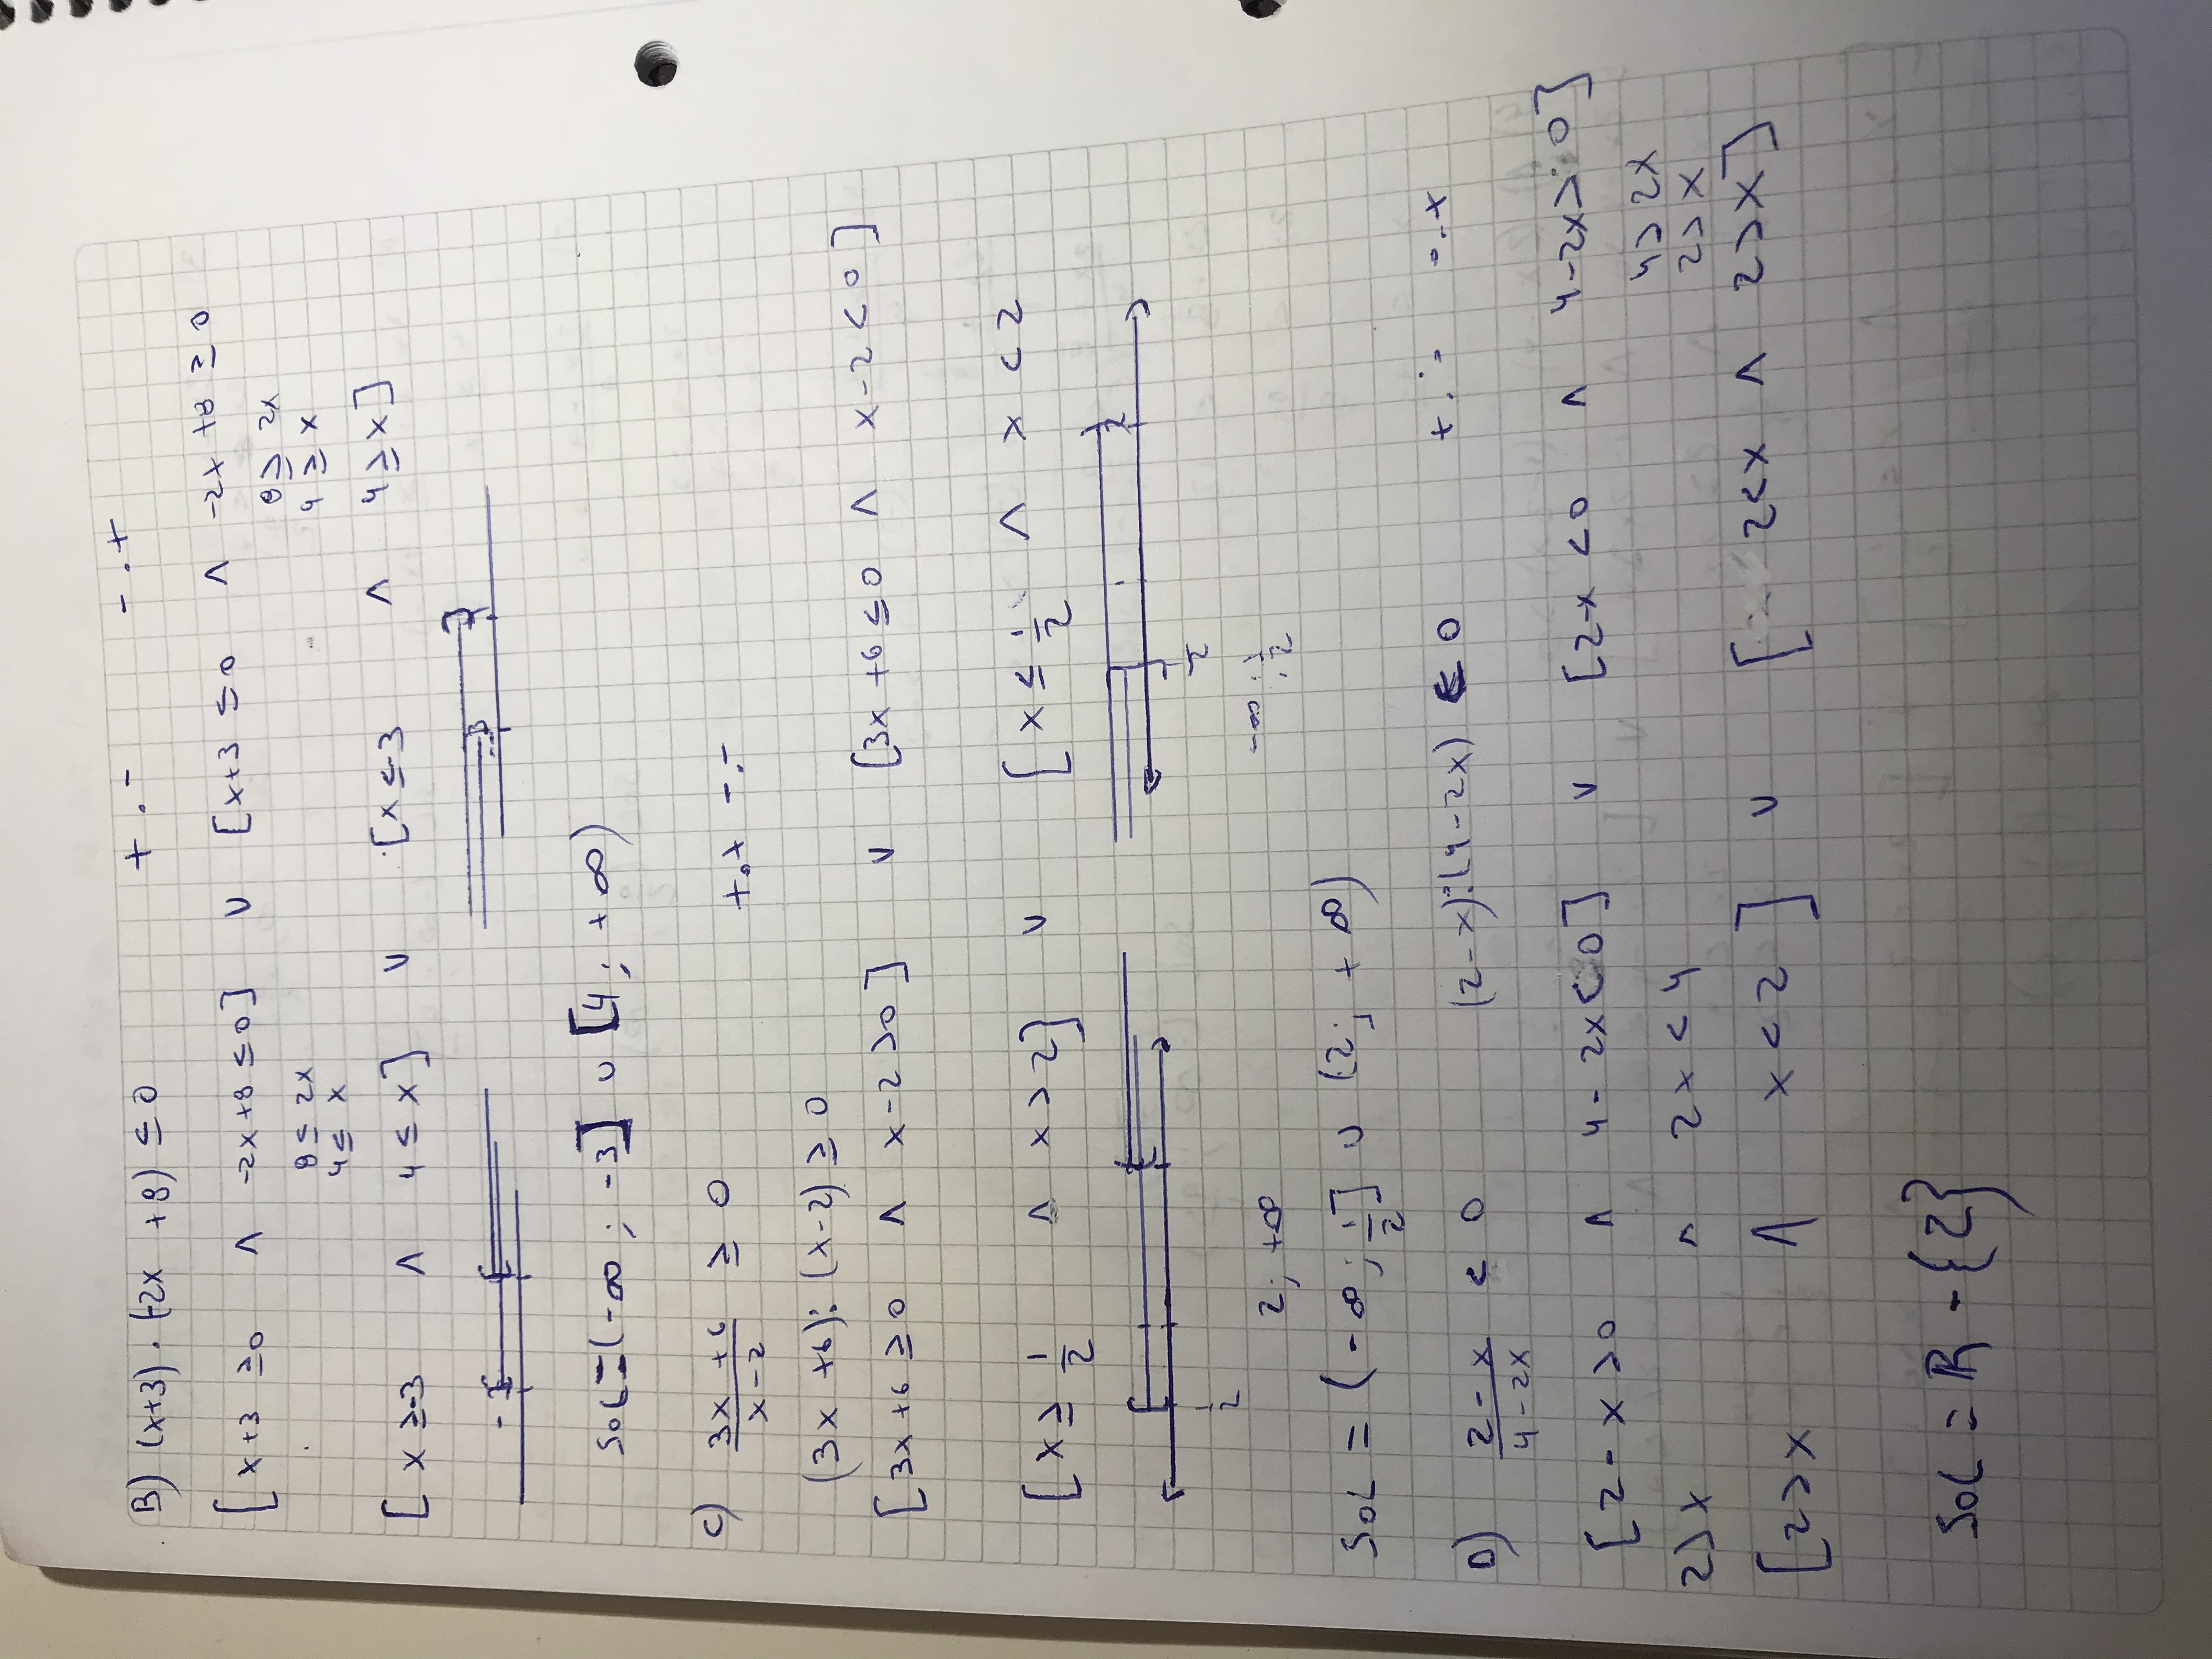 B) (x+3) . (-2x +8) ≤ 0 + . - - . +
[x+3 ≥0 ∧ -2x+8 ≤0] ∨ [x+3 ≤0 ∧ -2x +8 ≥ 0
8 ≤ 2x 8 ≥ 2x
4 ≤ x 4 ≥ x
[x ≥-3 ∧ 4 ≤ x] ∨ [x ≤-3 ∧ 4 ≥ x]
SOL=(-∞ ; -3] ∪ [4 ; +∞)
C) (3x +6)/(x-2) ≥ 0 + . + - . -
(3x +6) : (x-2) ≥ 0
[3x+6 ≥ 0 ∧ x-2 >0] ∨ [3x +6 ≤ 0 ∧ x-2 < 0]
[x ≥ 1/2 ∧ x > 2] ∨ [x ≤ 1/2 ∧ x < 2
1/2
2 ; +∞ -∞ ; 1/2
SOL = (-∞ ; 1/2] ∪ (2 ; +∞)
D) (2-x)/(4-2x) < 0 (2-x) : (4-2x) < 0 + . - - . +
[2-x >0 ∧ 4-2x < 0] ∨ [2-x <0 ∧ 4-2x > 0]
4 > 2x
2>x ∧ 2x < 4 2 > x
[2>x ∧ x < 2] ∨ [2<x ∧ 2>x]
SOL = ℝ - {2}